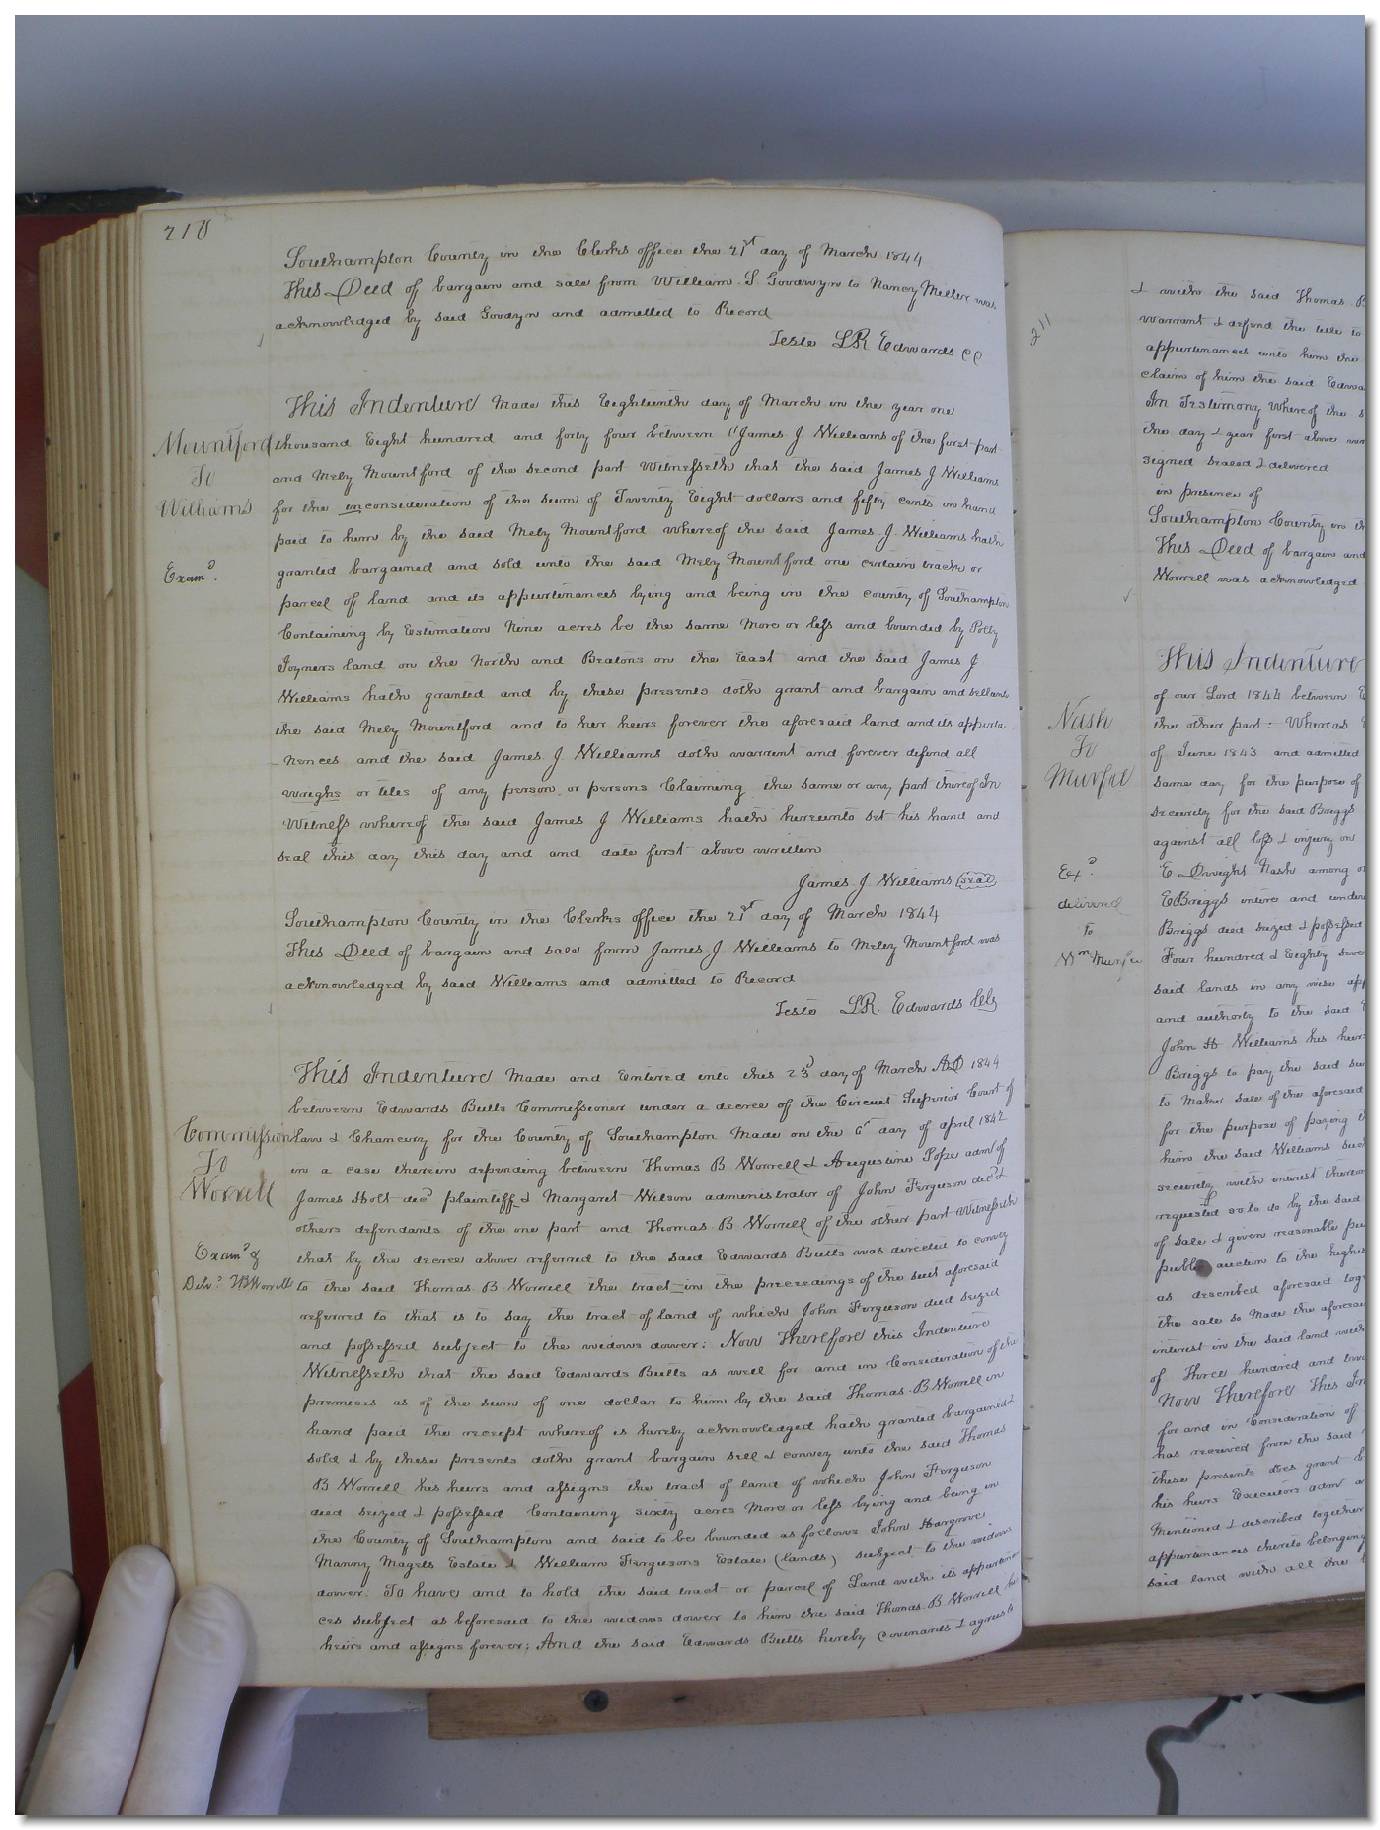 210
Southampton County in the Clerks office the 21st day of March 1844
This Deed of bargain and sale from William S Goodwyn to Nancy Miller was
acknowledged by said Goodyn and admitted to Record
Teste LR Edwards CC
This Indenture Made this Eighteenth day of March in the year one
Mountford
To
Williams
Examd.
thousand Eight hundred and forty four between James J Williams of the first part
and Mely Mountford of the second part Witnesseth that the said James J Williams
for the in consideration of the sum of Twenty Eight dollars and fifty cents in hand
paid to him by the said Mely Mountford whereof the said James J. Williams hath
granted bargained and sold unto the said Mely Mountford one certain tracts or
parcel of land and its appurtinances lying and being in the county of Southampton
Containing by Estimation Nine acres be the same More or less and bounded by Polly
Joyners land on the North and Beatons on the East and the said James J
Williams hath granted and by these presents doth grant and bargain and sell
the said Mely Mountford and to her heirs forever the aforesaid land and its appurte
-nences and the said James J. Williams doth warrent and forever defend all
wrighs or titles of any person or persons Claiming the same or any part thereof In
Witness whereof the said James J Williams hath hereunto set his hand and
seal this day this day and and date first above written
James J. Williams seal
Southampton County in the Clerks office the 21st day of March 1844
This Deed of bargain and sale from James J. Williams to Meley Mountford was
acknowledged by said Williams and admitted to Record
Teste LR. Edwards Clk
This Indenture Made and Entered into this 23d day of March AD 1844
between Edwards Butts Commissioner under a decree of the Circuit Superior Court of
Commission
To
Worrell
Examd &
Deld. TB Worrell
Law & Chancery for the County of Southampton Made on the 6th day of april 1842
in a case therein depending between Thomas B Worrell & Augustine Pope adm of
James Holt decd plaintiff & Margaret Wilson administrator of John Ferguson decd &
others defendants of the one part and Thomas B Worrell of the other part Witnesseth
that by the decree above referred to the said Edwards Butts was directed to convey
to the said Thomas B Worrell the tract in the preceedings of the suit aforesaid
referred to that is to say the tract of land of which John Ferguson died seized
and possessed subject to the widows dower: Now Therefore this Indenture
Witnesseth that the said Edwards Butts as well for and in Consideration of the
premises as of the sum of one dollar to him by the said Thomas B Worrell in
hand paid the receipt whereof is hereby acknowledged hath granted bargained &
sold & by these presents doth grant bargain sell & convey unto the said Thomas
B Worrell his heirs and assigns the tract of land of which John Ferguson
died seized & possessed Containing sixty acres More or less lying and being in
the County of Southampton and said to be bounded as follows John Hargrove
Manny Magets Estate & William Fergusons Estate (lands) subject to the widows
dower. To have and to hold the said tract or parcel of Land with its appurtinan
ces subject as beforesaid to the widows dower to him the said Thomas B. Worrell his
heirs and assigns forever; And the said Edwards Butts hereby Covenants & agrees to
211
& with the said Thomas B
warrant & defend the title to
appurtenances unto him the
claim of him the said Edwa
In Testimony Whereof the s
the day & year first above wri
signed sealed & delivered
in presence of
Southampton County in th
This Deed of bargain and
Worrell was acknowledged
This Indenture
of our Lord 1844 between E
Nash
To
Murfee
Exd.
delivered
to
Wm Murfee
the other part: Whereas
of June 1843 and admitted
same day for the purpose of
security for the said Briggs
against all loss & injury on
E Dwight Nash among o
E Briggs intire and undivi
Briggs died seized & possessed
Four hundred & Eighty seven
said lands in any wise app
and authority to the said E
John H Williams his heirs
Briggs to pay the said su
to Maker sale of the aforesaid
for the purpose of paying th
him the said Williams such
security with interest thereon
requested so to do by the said
of sale & given reasonable pu
public auction to the highes
as described aforesaid tog
the sale so Made the aforesai
interest in the said land with
of Three hundred and twe
Now Therefore This In
for and in Consideration of
has received from the said
these presents does grant b
his heirs Executors adm a
Mentioned & described together
appurtenances thereto belonging
said land with all the